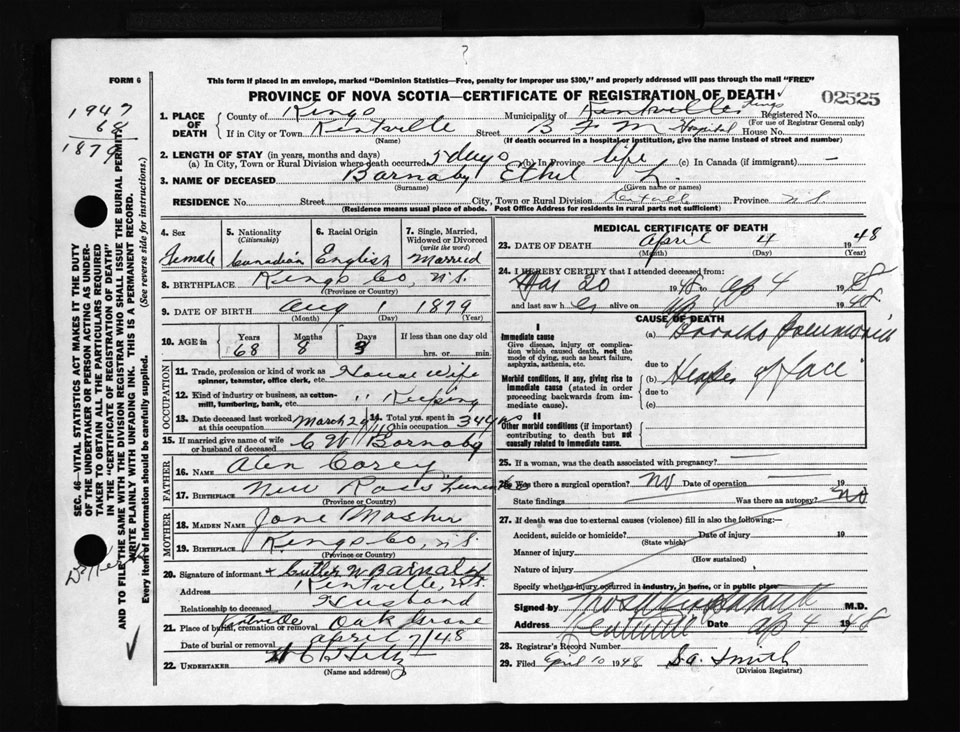 ?
FORM 6
This form if placed in an envelope, marked "Dominion Statistics—Free, penalty for improper use $300," and properly addressed will pass through the mail "FREE"
PROVINCE OF NOVA SCOTIA—CERTIFICATE OF REGISTRATION OF DEATH
02525
1947
68
1879
1. PLACE OF DEATH
County of Kings
Municipality of Kentville Kings
Registered No.
(For use of Registrar General only)
If in City or Town Kentville Street B F M Hospital House No.
(Name) (If death occurred in a hospital or institution, give the name instead of street and number)
2. LENGTH OF STAY (in years, months and days)
(a) In City, Town or Rural Division where death occurred 5 days (b) In Province life (c) In Canada (if immigrant) —
3. NAME OF DECEASED Barnaby Ethel L.
(Surname) (Given name or names)
RESIDENCE No. Street City, Town or Rural Division Kentville Province N.S.
(Residence means usual place of abode. Post Office Address for residents in rural parts not sufficient)
4. Sex
Female
5. Nationality (Citizenship)
Canadian
6. Racial Origin
English
7. Single, Married, Widowed or Divorced (write the word)
Married
8. BIRTHPLACE Kings Co, N.S.
(Province or Country)
9. DATE OF BIRTH Aug 1 1879
(Month) (Day) (Year)
10. AGE in Years Months Days If less than one day
68 8 3 hrs. or min.
OCCUPATION
11. Trade, profession or kind of work as spinner, teamster, office clerk, etc. House Wife
12. Kind of industry or business, as cotton-mill, lumbering, bank, etc. " Keeping
13. Date deceased last worked at this occupation March 29
14. Total yrs. spent in this occupation 34 yrs
15. If married give name of wife or husband of deceased C W Barnaby
FATHER
16. NAME Alen Corey
17. BIRTHPLACE New Ross
(Province or Country)
MOTHER
18. MAIDEN NAME Jane Mosher
19. BIRTHPLACE Kings Co, N.S.
(Province or Country)
20. Signature of informant + Cutler W Barnaby
Address Kentville, N.S.
Relationship to deceased Husband
21. Place of burial, cremation or removal Kentville Oak Grove
Date of burial or removal April 7/48
22. UNDERTAKER
(Name and address)
MEDICAL CERTIFICATE OF DEATH
23. DATE OF DEATH April 4 1948
(Month) (Day) (Year)
24. I HEREBY CERTIFY that I attended deceased from:
Mar 20 1948 to Ap 4 1948
and last saw her alive on Ap 1948
CAUSE OF DEATH
I
Immediate cause
Give disease, injury or complication which caused death, not the mode of dying, such as heart failure, asphyxia, asthenia, etc.
(a) Broncho Pneumonia
due to
Morbid conditions, if any, giving rise to immediate cause (stated in order proceeding backwards from immediate cause).
(b) Herpes of Face
due to
(c)
II
Other morbid conditions (if important) contributing to death but not causally related to immediate cause.
25. If a woman, was the death associated with pregnancy? —
26. Was there a surgical operation? No Date of operation — 19
State findings Was there an autopsy? No
27. If death was due to external causes (violence) fill in also the following:—
Accident, suicide or homicide? Date of injury 19
(State which)
Manner of injury
(How sustained)
Nature of injury
Specify whether injury occurred in industry, in home, or in public place
Signed by M.D.
Address Kentville Date Ap 4 1948
28. Registrar's Record Number
29. Filed April 10 1948 S.A. Smith
(Division Registrar)
SEC. 46—VITAL STATISTICS ACT MAKES IT THE DUTY OF THE UNDERTAKER OR PERSON ACTING AS UNDERTAKER TO OBTAIN ALL THE PARTICULARS REQUIRED IN THE "CERTIFICATE OF REGISTRATION OF DEATH" AND TO FILE THE SAME WITH THE DIVISION REGISTRAR WHO SHALL ISSUE THE BURIAL PERMIT.
WRITE PLAINLY WITH UNFADING INK. THIS IS A PERMANENT RECORD.
Every item of information should be carefully supplied. (See reverse side for instructions.)